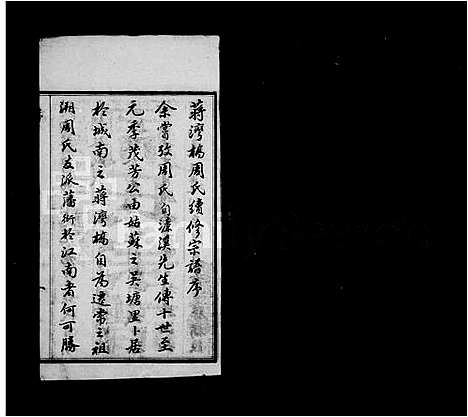 蔣灣橋周氏續修宗譜序
余嘗攷周氏自濂溪先生傳十世至
元季茂芳公由姑蘇之吳塘里卜居
於城南之蔣灣橋自為遷常之祖
溯周氏支派蕃衍於江南者何可勝